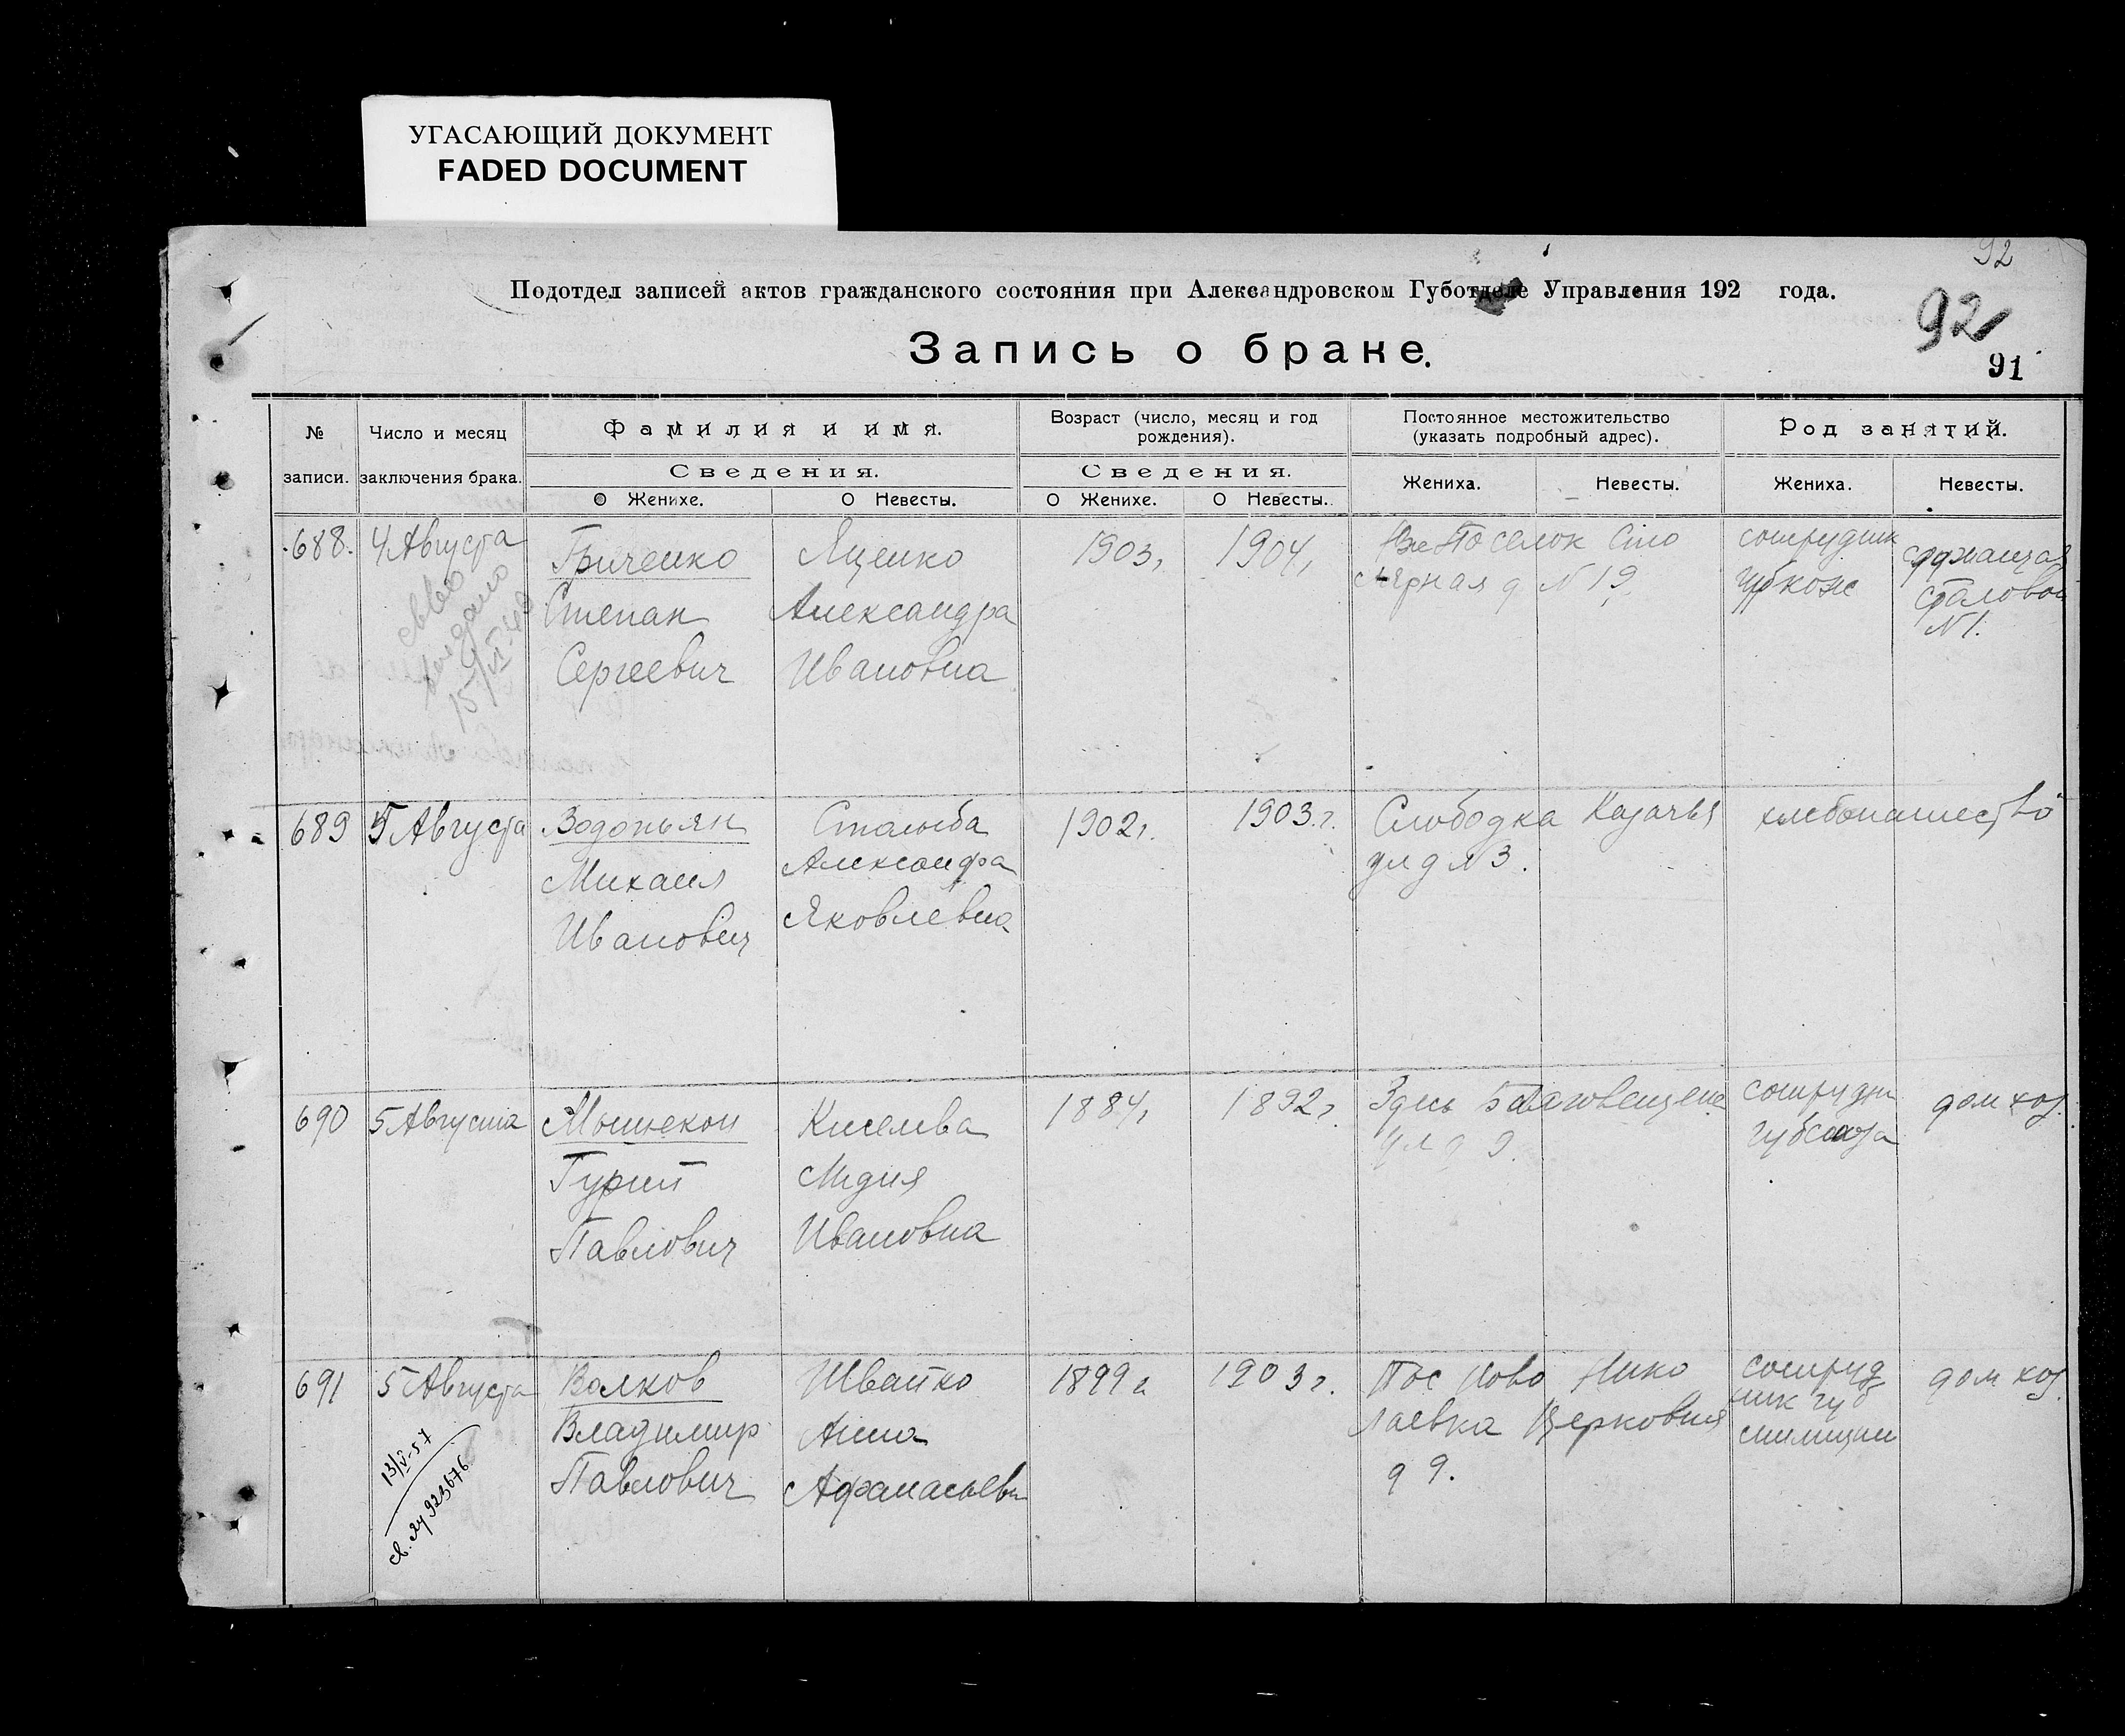 УГАСАЮЩИЙ ДОКУМЕНТ
FADED DOCUMENT
92
Подотдел записей актов гражданского состояния при Александровском Губотделе Управления 192 года.
92
Запись о браке.
91
№ записи.
Число и месяц заключения брака.
Фамилия и имя.
Сведения.
О Женихе.
О Невесты.
Возраст (число, месяц и год рождения).
Сведения.
О Женихе.
О Невесты.
Постоянное местожительство (указать подробный адрес).
Жениха.
Невесты.
Род занятий.
Жениха.
Невесты.
688
4 Августа
15/VI-40
Гриченко
Степан
Сергеевич
Яценко
Александра
Ивановна
1903г
1904г
Поселок Сто
лярная д N 19
сотрудник
столовой
N 1.
689
5 Августа
Водопьян
Михаил
Иванович
Александра
Яковлевна
1902г.
1903.г.
Слободка Казачья
ул д N 3.
хлебопашество
690
5 Августа
Гурий
Павлович
Киселева
Лидия
Ивановна
1884г
1892г
Здесь Благовещенс
ул д 9.
сотрудн
губсоюза
дом хоз.
691
5 Августа
13/V-57
св. ЛУ 923676
Волков
Владимир
Павлович
Швайко
Анна
Афанасьевн
1899г
1903г.
Пос Ново Нико
лаевка Церковная
д 9.
сотруд
ник губ
милиции
дом хоз.